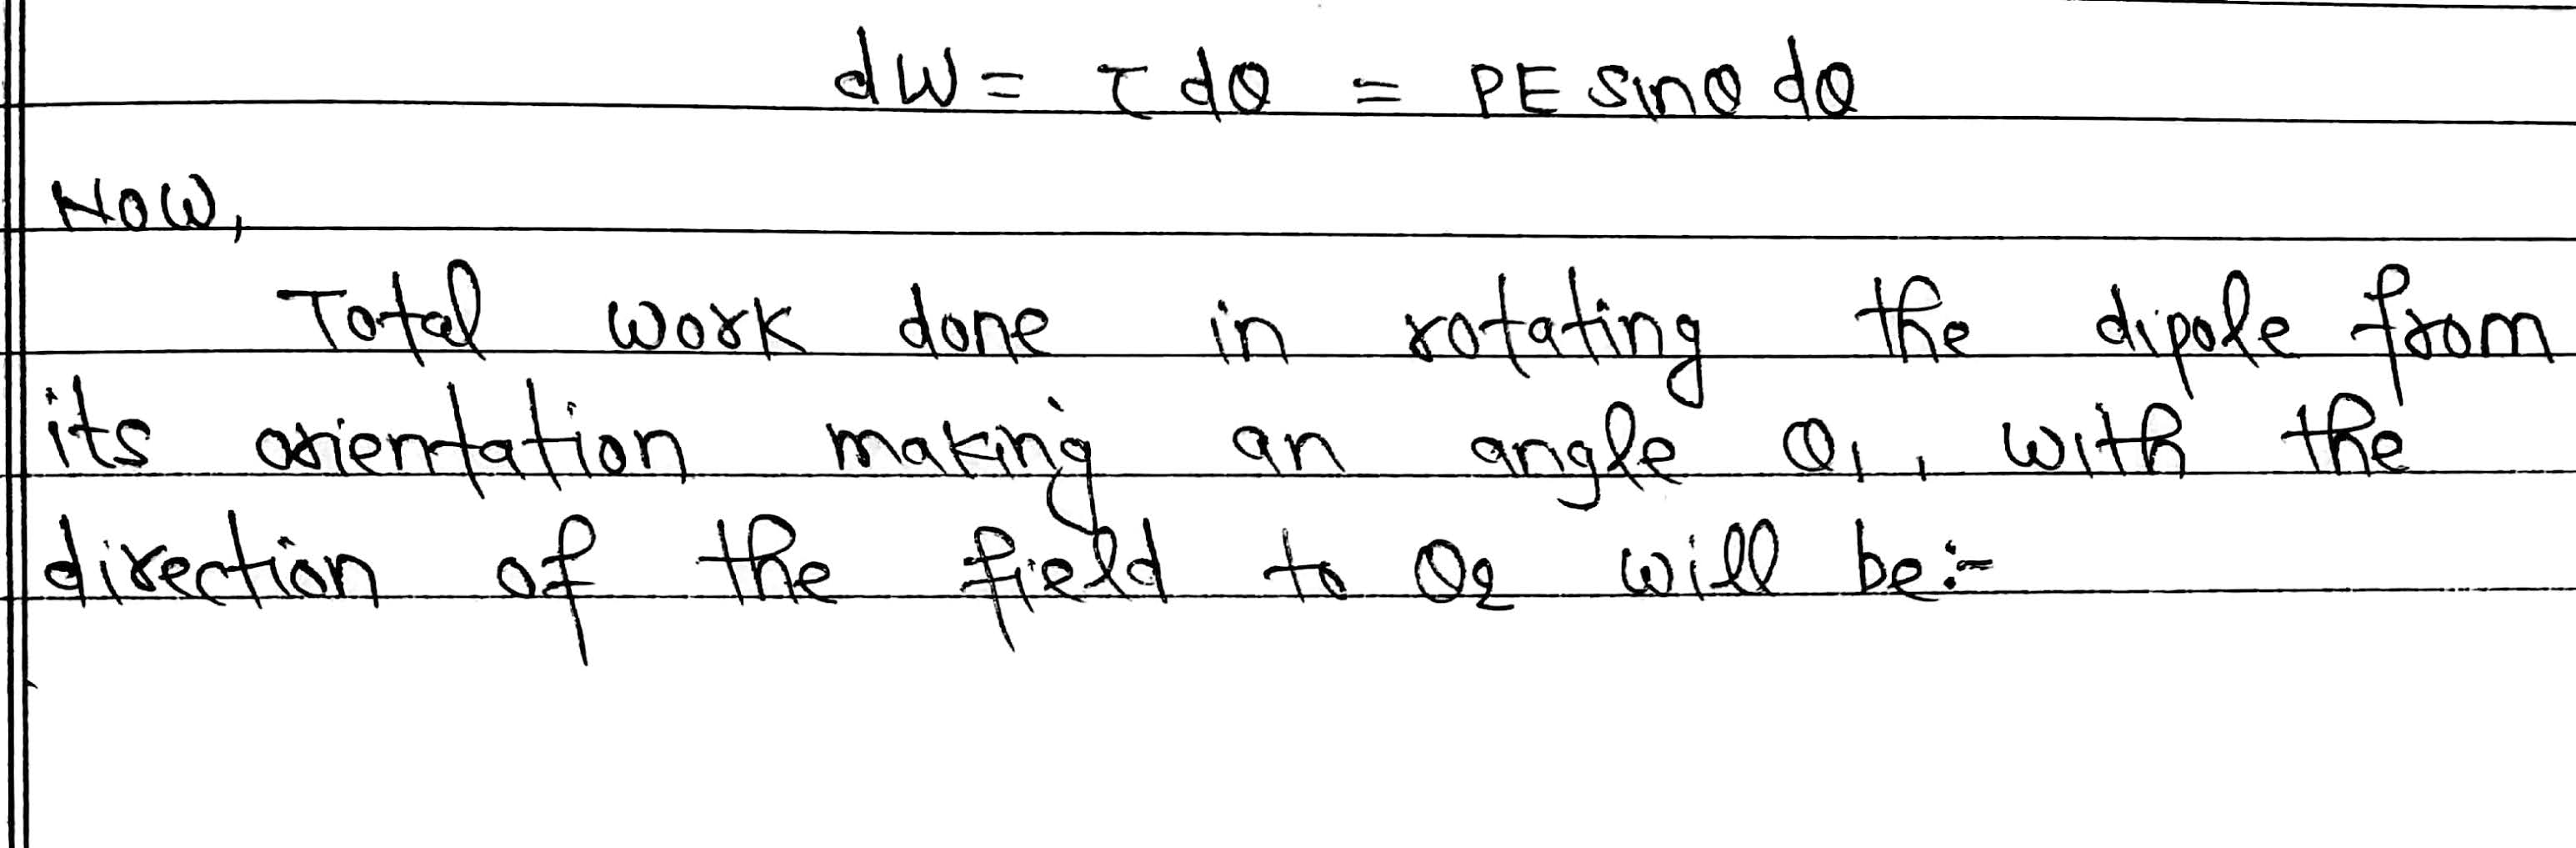 dW = τ dθ = PE sinθ dθ
Now,
Total work done in rotating the dipole from
its orientation making an angle θ₁, with the
direction of the field to θ₂ will be:-